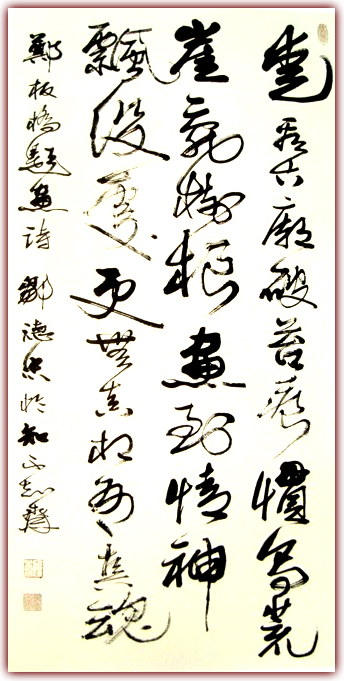 愛看古廟破苔痕慣寫荒
崖亂樹根畫到情神
飄没處更無真相有真魂
鄭板橋題畫詩 鄒德忠於知不齋